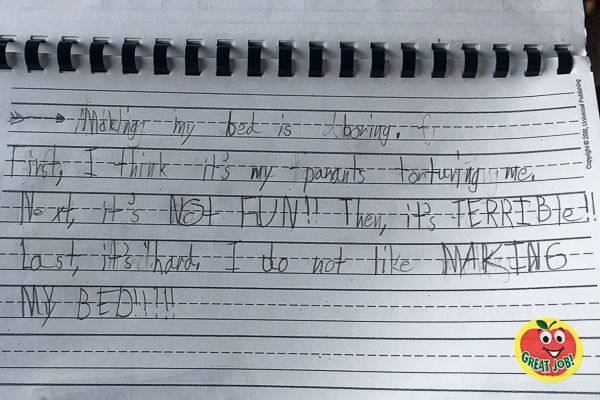 Making my bed is boring.
First, I think it's my parants torturing me.
Next, it's NOt FUN!! Then, it's TERRIBle!!
Last, it's hard. I do not like MAKING
MY BED!!!!!
GREAT JOB!
Copyright © 2008, Universal Publishing